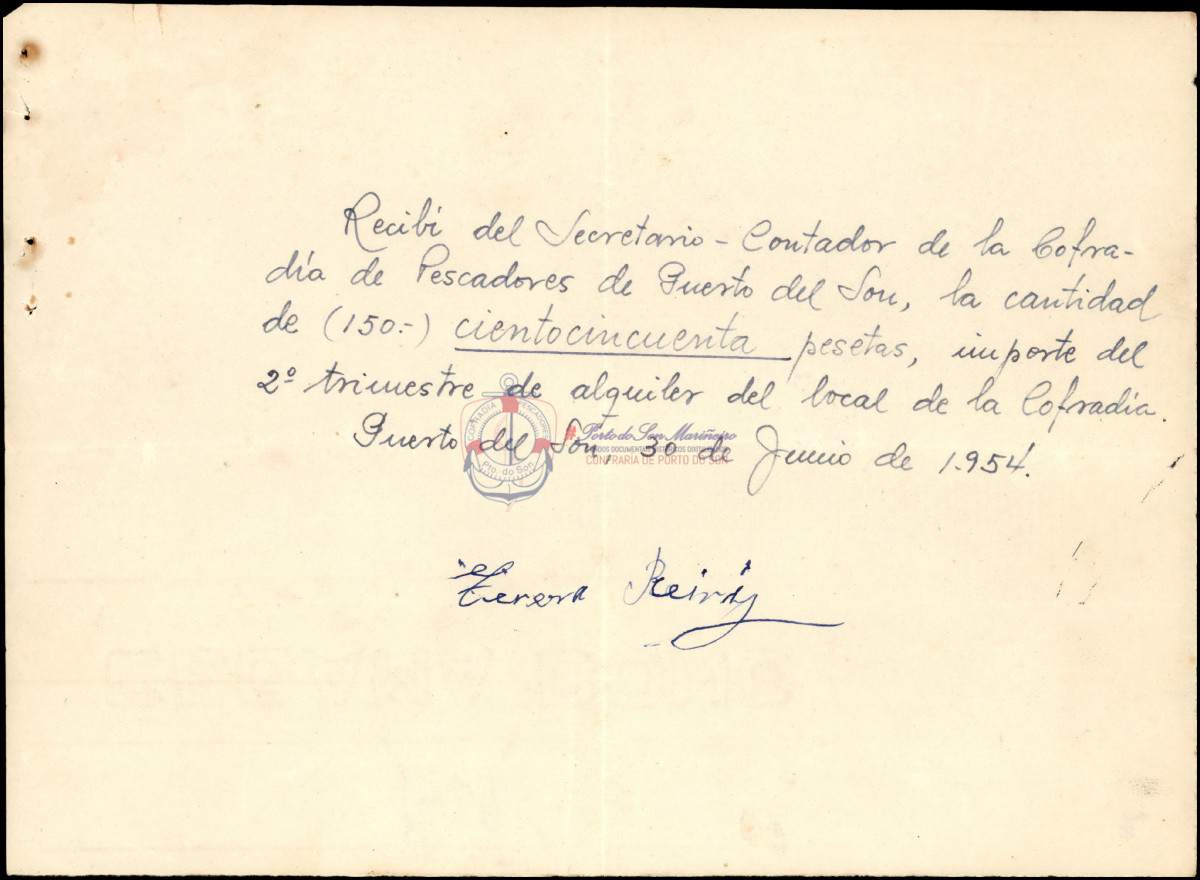 Recibí del Secretario-Contador de la Cofra-
día de Pescadores de Puerto del Son, la cantidad
de (150.-) cientocincuenta pesetas, importe del
2º trimestre de alquiler del local de la Cofradía.
Puerto del Son, 30 de Junio de 1.954.
COFRADIA PESCADORES
Pto. do Son
#Porto do Son Mariñeiro
CONFRARÍA DE PORTO DO SON
Teresa